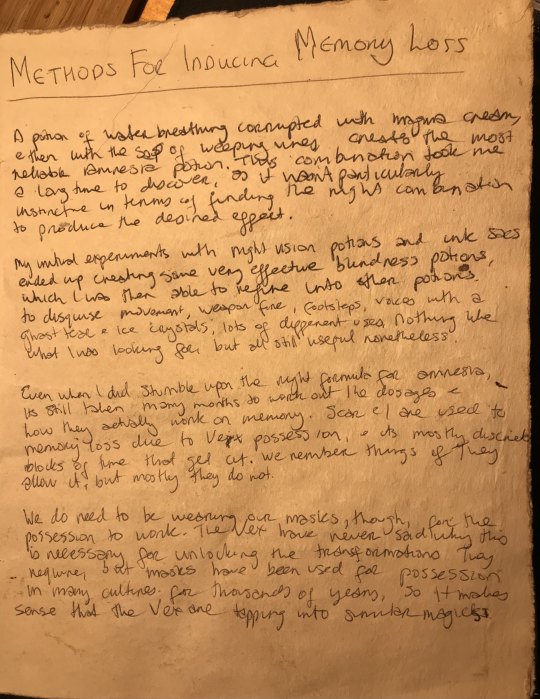 METHODS FOR INDUCING MEMORY LOSS
A potion of water breathing corrupted with magma cream,
& then with the sap of weeping vines creates the most
reliable Amnesia potion. This combination took me
a long time to discover, as it wasn't particularly
instinctive in terms of finding the right combination
to produce the desired effect.
My initial experiments with night vision potions and ink sacs
ended up creating some very effective blindness potions,
which I was then able to refine into other potions
to disguise movement, weapon fire, footsteps, voices with a
ghast tear & ice crystals, lots of different uses. Nothing like
what I was looking for, but all still useful nonetheless.
Even when I did stumble upon the right formula for amnesia,
its still taken many months to work out the dosages &
how they actually work on memory. Scar & I are used to
memory loss due to Vex possession, & its mostly discrete
blocks of time that get cut. We remember things if They
allow it, but mostly they do not.
We do need to be wearing our masks, though, for the
possession to work. The Vex have never said why this
is necessary for unlocking the transformations They
require, but masks have been used for possession
in many cultures for thousands of years, so it makes
sense that the Vex are tapping into similar magicks.